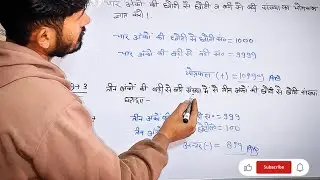 चार अंको की छोटी से छोटी व बड़ी से बड़ी संख्या का योगफल
ज्ञात करो।
चार अंको की छोटी से छोटी सं० = 1000
चार अंको की बड़ी से बड़ी सं० = 9999
योगफल (+) = 10999 Ans
)+3
तीन अंको की बड़ी से बड़ी संख्या में से तीन अंको की छोटी से छोटी संख्या
घटाइए -
तीन अंको की बड़ी से बड़ी सं० = 999
तीन अंको = 100
अन्तर (-) = 899 Ans
LIKE AND SUBSCRIBE